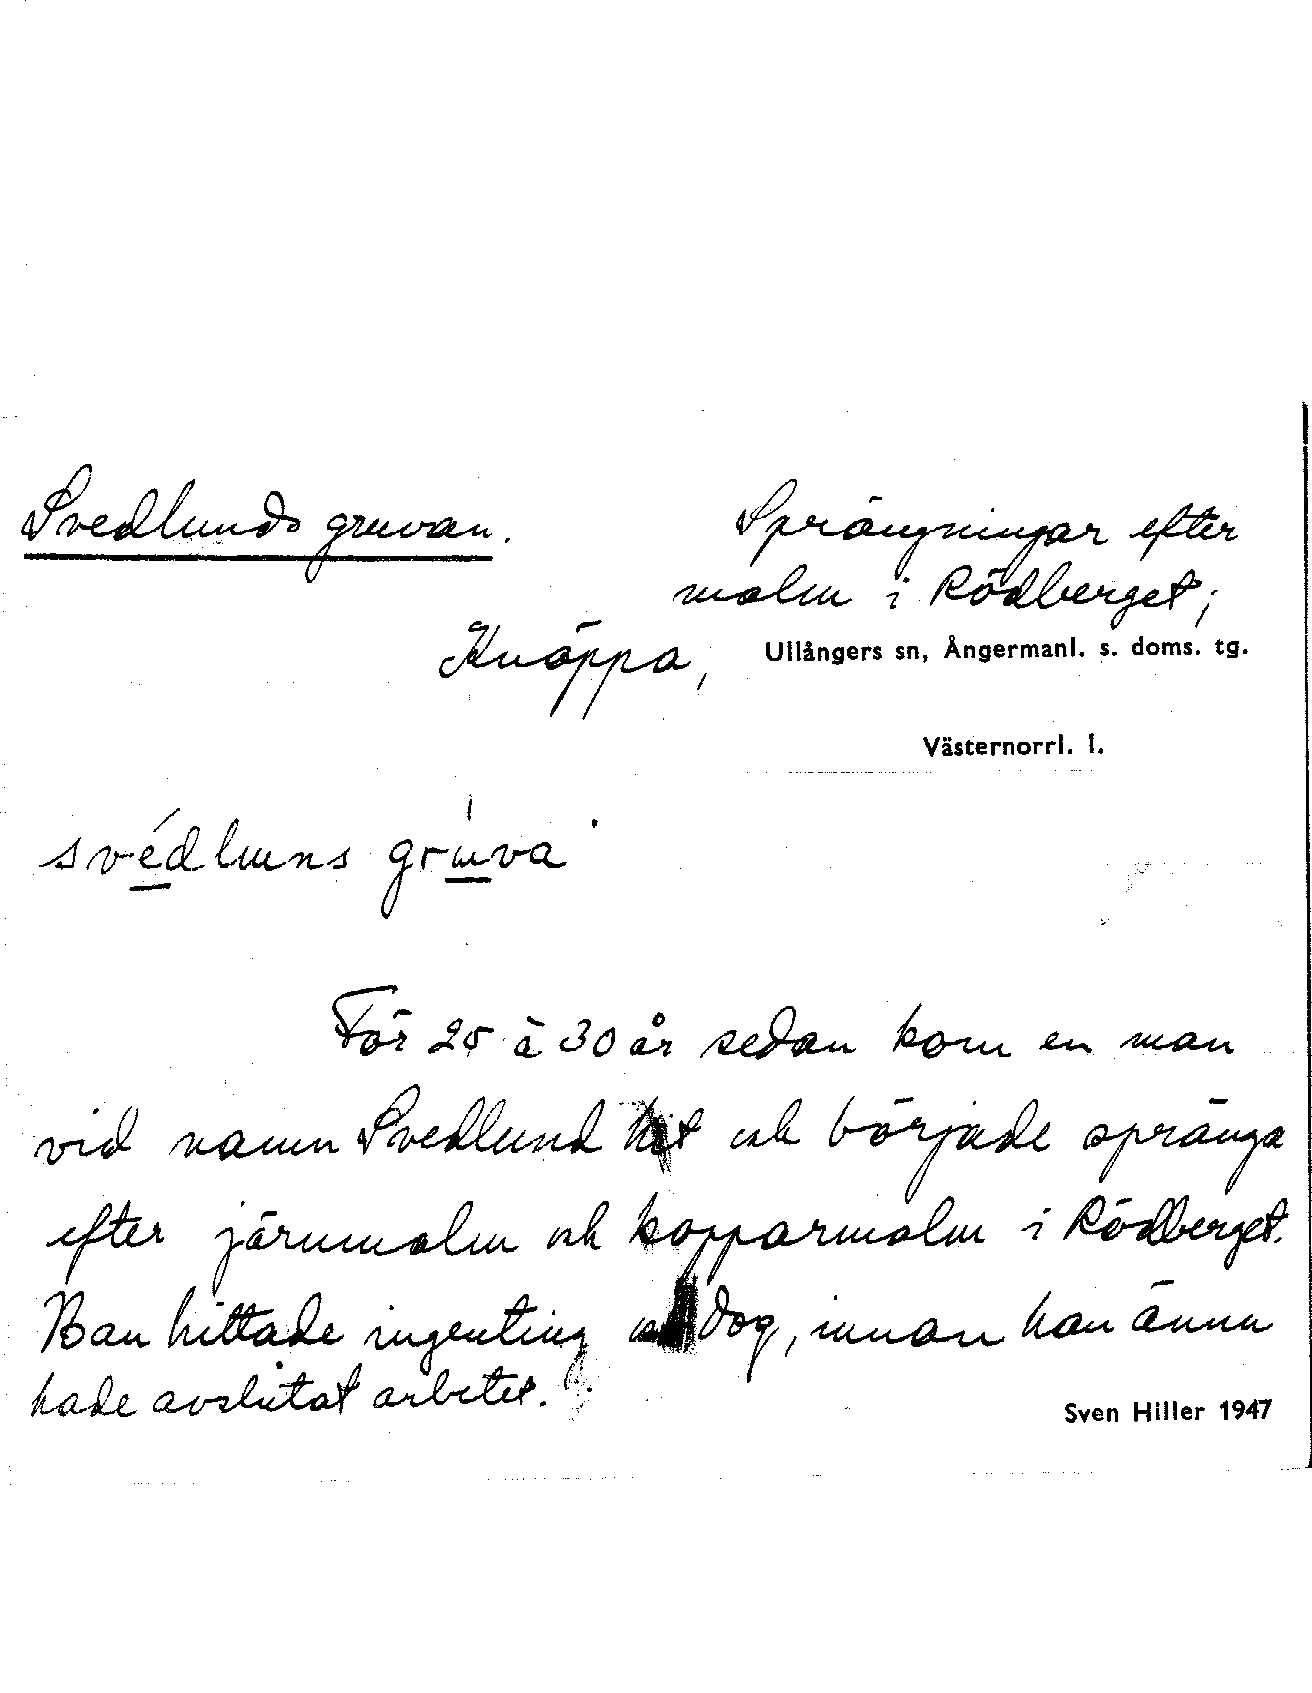 Svedlunds gruvan.
Sprängningar efter
malm i Rödberget;
Knäppa, Ullångers sn, Ångermanl. s. doms. tg.
Västernorrl. l.
svédluns grùva
För 25 à 30 år sedan kom en man
vid namn Svedlund hit och började spränga
efter järnmalm och kopparmalm i Rödberget.
Han hittade ingenting och dog, innan han ännu
hade avslutat arbetet.
Sven Hiller 1947